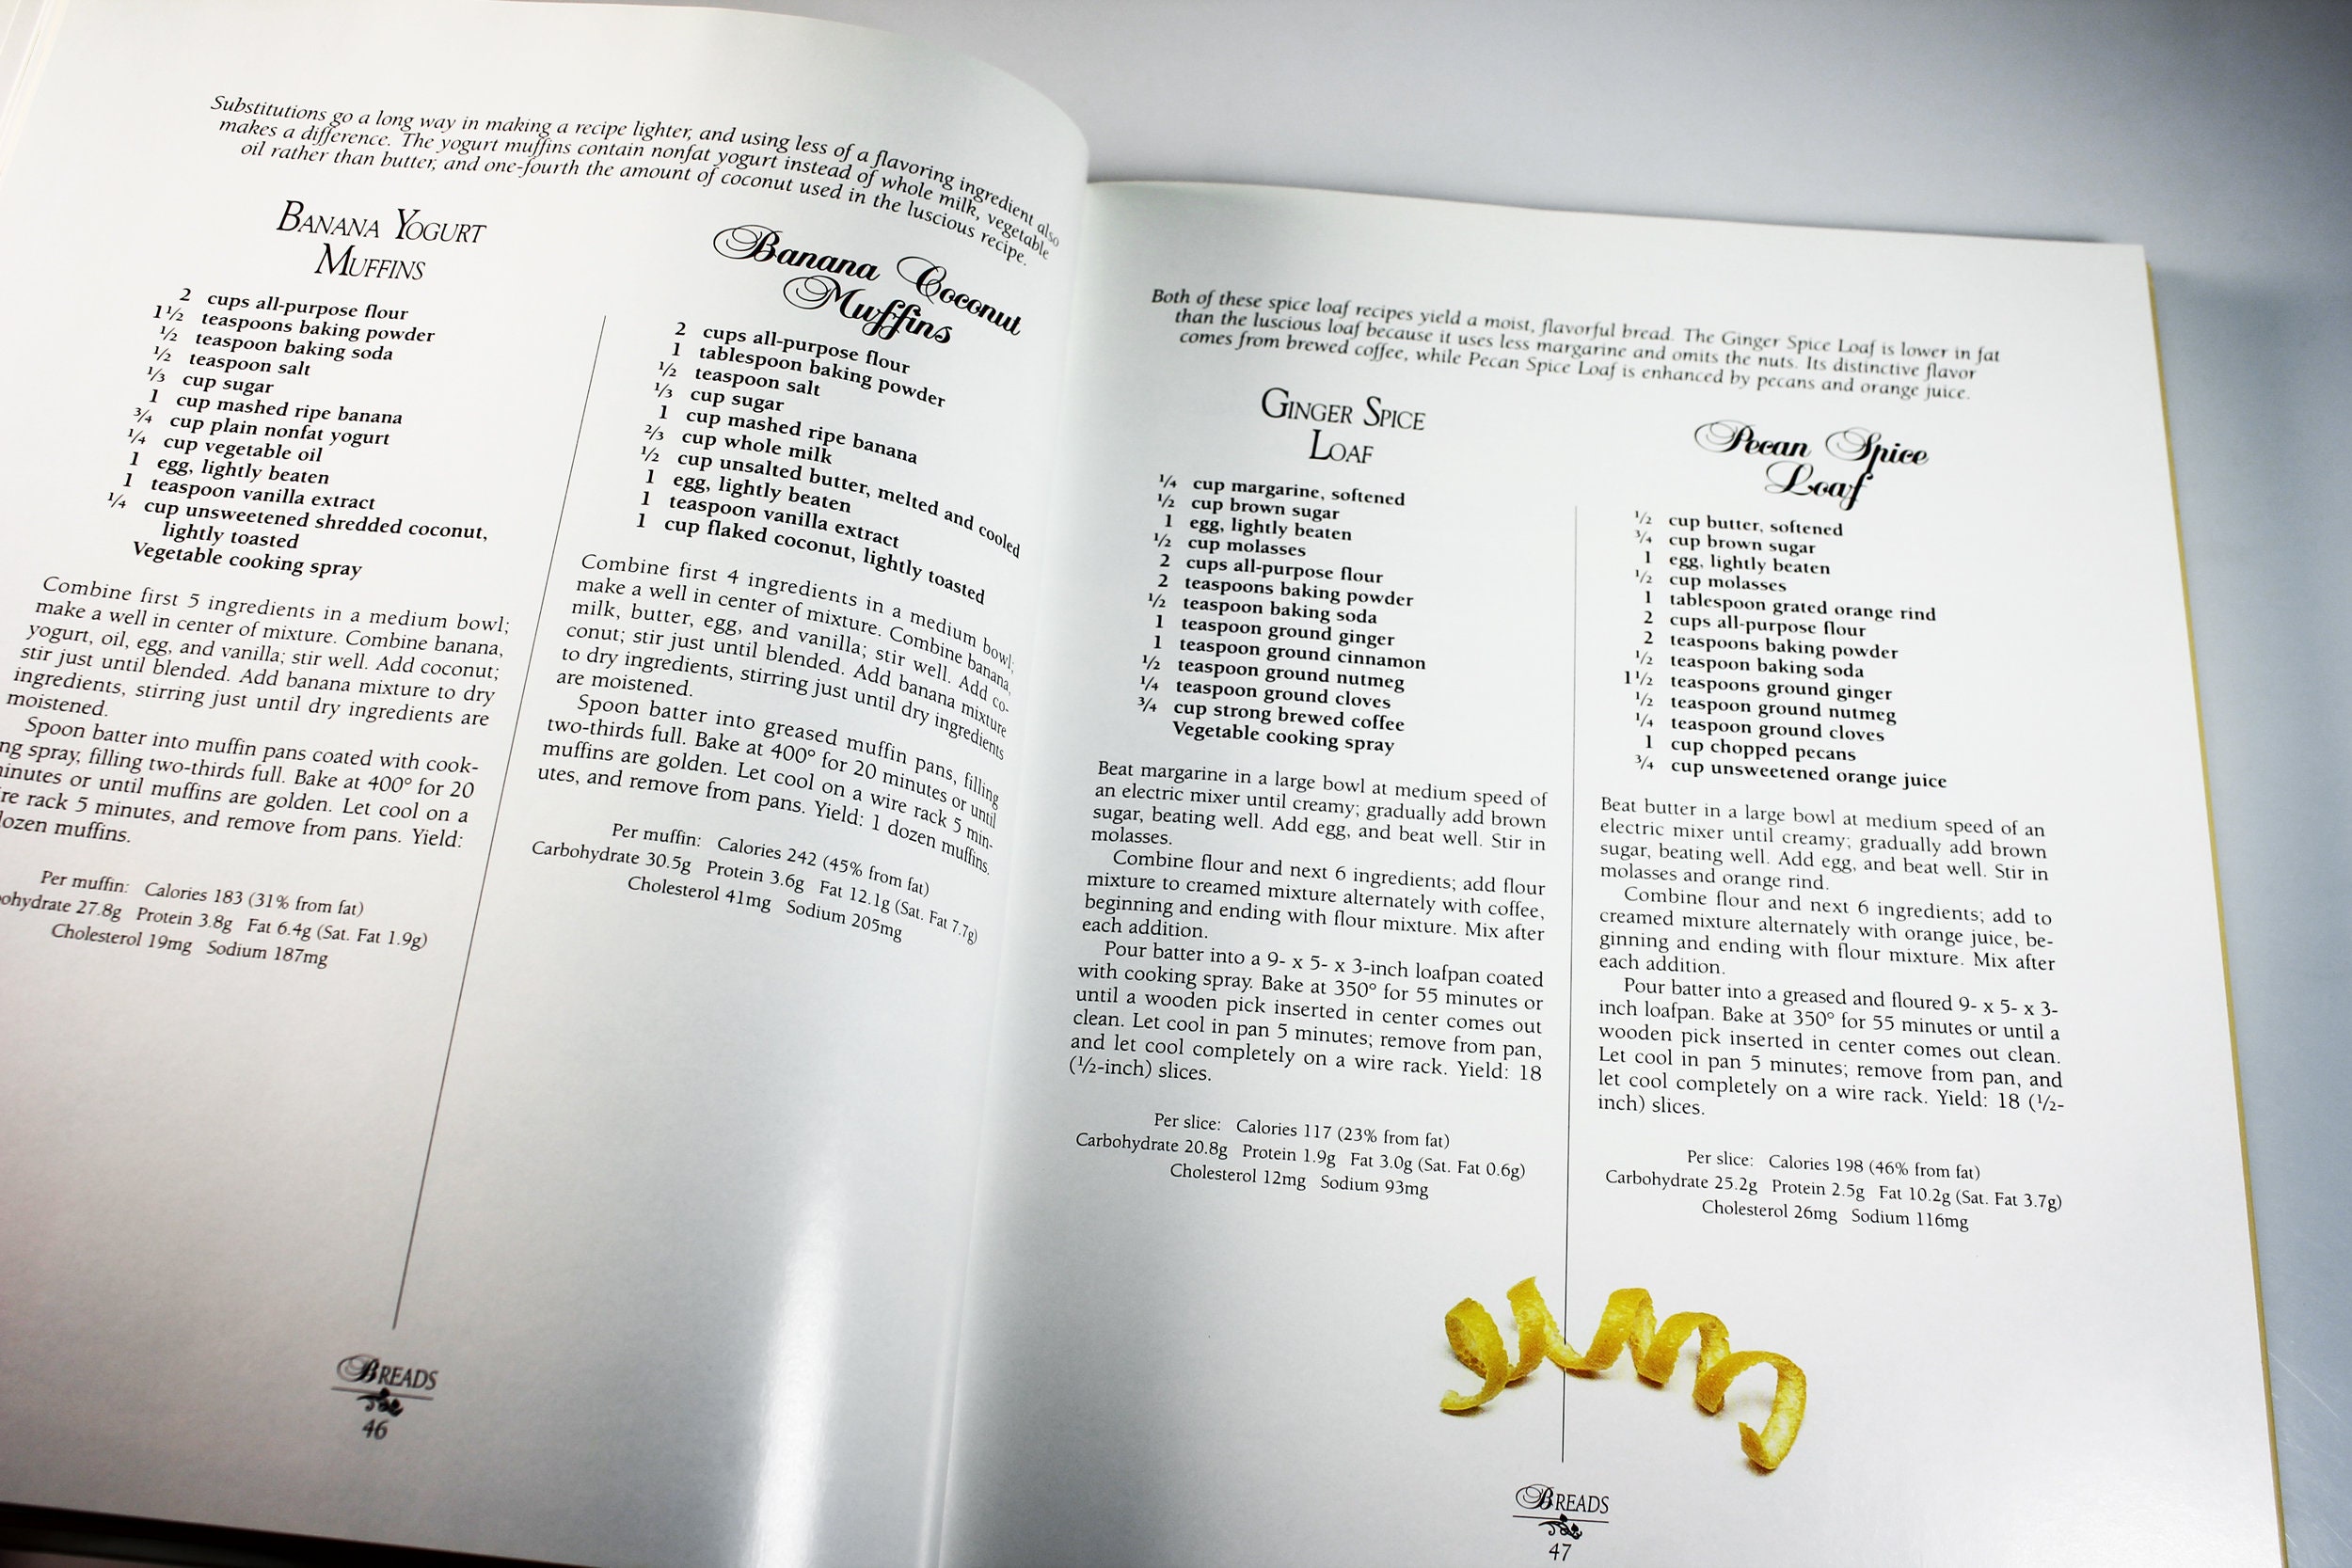 Substitutions go a long way in making a recipe lighter, and using less of a flavoring ingredient also
makes a difference. The yogurt muffins contain nonfat yogurt instead of whole milk, vegetable
oil rather than butter, and one-fourth the amount of coconut used in the luscious recipe.
BANANA YOGURT
MUFFINS
2 cups all-purpose flour
1½ teaspoons baking powder
½ teaspoon baking soda
½ teaspoon salt
⅓ cup sugar
1 cup mashed ripe banana
¾ cup plain nonfat yogurt
¼ cup vegetable oil
1 egg, lightly beaten
1 teaspoon vanilla extract
¼ cup unsweetened shredded coconut,
lightly toasted
Vegetable cooking spray
Combine first 5 ingredients in a medium bowl;
make a well in center of mixture. Combine banana,
yogurt, oil, egg, and vanilla; stir well. Add coconut;
stir just until blended. Add banana mixture to dry
ingredients, stirring just until dry ingredients are
moistened.
Spoon batter into muffin pans coated with cook-
ng spray, filling two-thirds full. Bake at 400° for 20
inutes or until muffins are golden. Let cool on a
re rack 5 minutes, and remove from pans. Yield:
ozen muffins.
Per muffin: Calories 183 (31% from fat)
ohydrate 27.8g Protein 3.8g Fat 6.4g (Sat. Fat 1.9g)
Cholesterol 19mg Sodium 187mg
BREADS
46
Banana Coconut
Muffins
2 cups all-purpose flour
1 tablespoon baking powder
½ teaspoon salt
⅓ cup sugar
1 cup mashed ripe banana
⅔ cup whole milk
½ cup unsalted butter, melted and cooled
1 egg, lightly beaten
1 teaspoon vanilla extract
1 cup flaked coconut, lightly toasted
Combine first 4 ingredients in a medium bowl;
make a well in center of mixture. Combine banana,
milk, butter, egg, and vanilla; stir well. Add co-
conut; stir just until blended. Add banana mixture
to dry ingredients, stirring just until dry ingredients
are moistened.
Spoon batter into greased muffin pans, filling
two-thirds full. Bake at 400° for 20 minutes or until
muffins are golden. Let cool on a wire rack 5 min-
utes, and remove from pans. Yield: 1 dozen muffins.
Per muffin: Calories 242 (45% from fat)
Carbohydrate 30.5g Protein 3.6g Fat 12.1g (Sat. Fat 7.7g)
Cholesterol 41mg Sodium 205mg
Both of these spice loaf recipes yield a moist, flavorful bread. The Ginger Spice Loaf is lower in fat
than the luscious loaf because it uses less margarine and omits the nuts. Its distinctive flavor
comes from brewed coffee, while Pecan Spice Loaf is enhanced by pecans and orange juice.
GINGER SPICE
LOAF
¼ cup margarine, softened
½ cup brown sugar
1 egg, lightly beaten
½ cup molasses
2 cups all-purpose flour
2 teaspoons baking powder
½ teaspoon baking soda
1 teaspoon ground ginger
1 teaspoon ground cinnamon
½ teaspoon ground nutmeg
¼ teaspoon ground cloves
¾ cup strong brewed coffee
Vegetable cooking spray
Beat margarine in a large bowl at medium speed of
an electric mixer until creamy; gradually add brown
sugar, beating well. Add egg, and beat well. Stir in
molasses.
Combine flour and next 6 ingredients; add flour
mixture to creamed mixture alternately with coffee,
beginning and ending with flour mixture. Mix after
each addition.
Pour batter into a 9- x 5- x 3-inch loafpan coated
with cooking spray. Bake at 350° for 55 minutes or
until a wooden pick inserted in center comes out
clean. Let cool in pan 5 minutes; remove from pan,
and let cool completely on a wire rack. Yield: 18
(½-inch) slices.
Per slice: Calories 117 (23% from fat)
Carbohydrate 20.8g Protein 1.9g Fat 3.0g (Sat. Fat 0.6g)
Cholesterol 12mg Sodium 93mg
Pecan Spice
Loaf
½ cup butter, softened
¾ cup brown sugar
1 egg, lightly beaten
½ cup molasses
1 tablespoon grated orange rind
2 cups all-purpose flour
2 teaspoons baking powder
½ teaspoon baking soda
1½ teaspoons ground ginger
½ teaspoon ground nutmeg
¼ teaspoon ground cloves
1 cup chopped pecans
¾ cup unsweetened orange juice
Beat butter in a large bowl at medium speed of an
electric mixer until creamy; gradually add brown
sugar, beating well. Add egg, and beat well. Stir in
molasses and orange rind.
Combine flour and next 6 ingredients; add to
creamed mixture alternately with orange juice, be-
ginning and ending with flour mixture. Mix after
each addition.
Pour batter into a greased and floured 9- x 5- x 3-
inch loafpan. Bake at 350° for 55 minutes or until a
wooden pick inserted in center comes out clean.
Let cool in pan 5 minutes; remove from pan, and
let cool completely on a wire rack. Yield: 18 (½-
inch) slices.
Per slice: Calories 198 (46% from fat)
Carbohydrate 25.2g Protein 2.5g Fat 10.2g (Sat. Fat 3.7g)
Cholesterol 26mg Sodium 116mg
BREADS
47